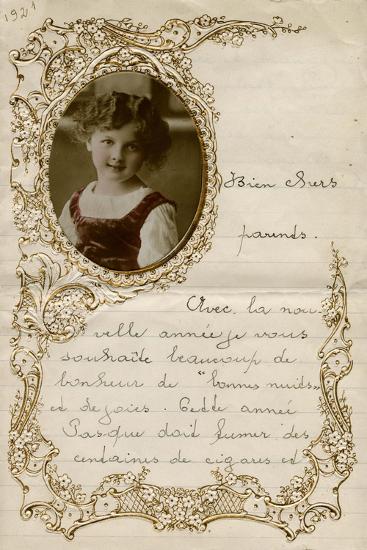 1921
Bien chers
parents.
Avec la nou-
velle année je vous
souhaite beaucoup de
bonheur de "bonnes nuits"
et de joies. Cette année
Pasque doit fumer des
centaines de cigares et